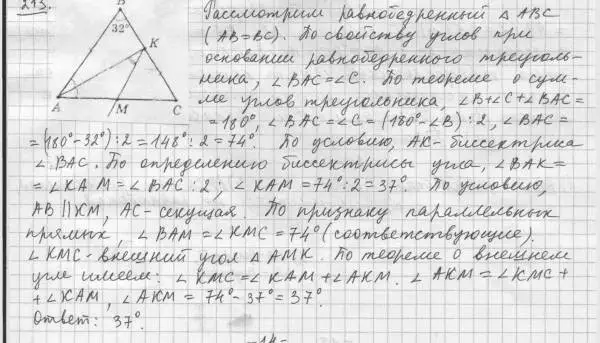 213.
B
32°
K
A
M
C
Рассмотрим равнобедренный △ ABC
(AB=BC). По свойству углов при
основании равнобедренного треуголь-
ника, ∠BAC=∠C. По теореме о сум-
ме углов треугольника, ∠B+∠C+∠BAC=
=180°, ∠BAC=∠C=(180°-∠B):2, ∠BAC=
=(180°-32°):2=148°:2=74°. По условию, AK-биссектриса
∠BAC. По определению биссектрисы угла, ∠BAK=
=∠KAM=∠BAC:2; ∠KAM=74°:2=37°. По условию,
AB||KM, AC-секущая. По признаку параллельных
прямых, ∠BAM=∠KMC=74° (соответствующие).
∠KMC-внешний угол △AMK. По теореме о внешнем
угле имеем: ∠KMC=∠KAM+∠AKM. ∠AKM=∠KMC+
+∠KAM, ∠AKM=74°-37°=37°.
Ответ: 37°.